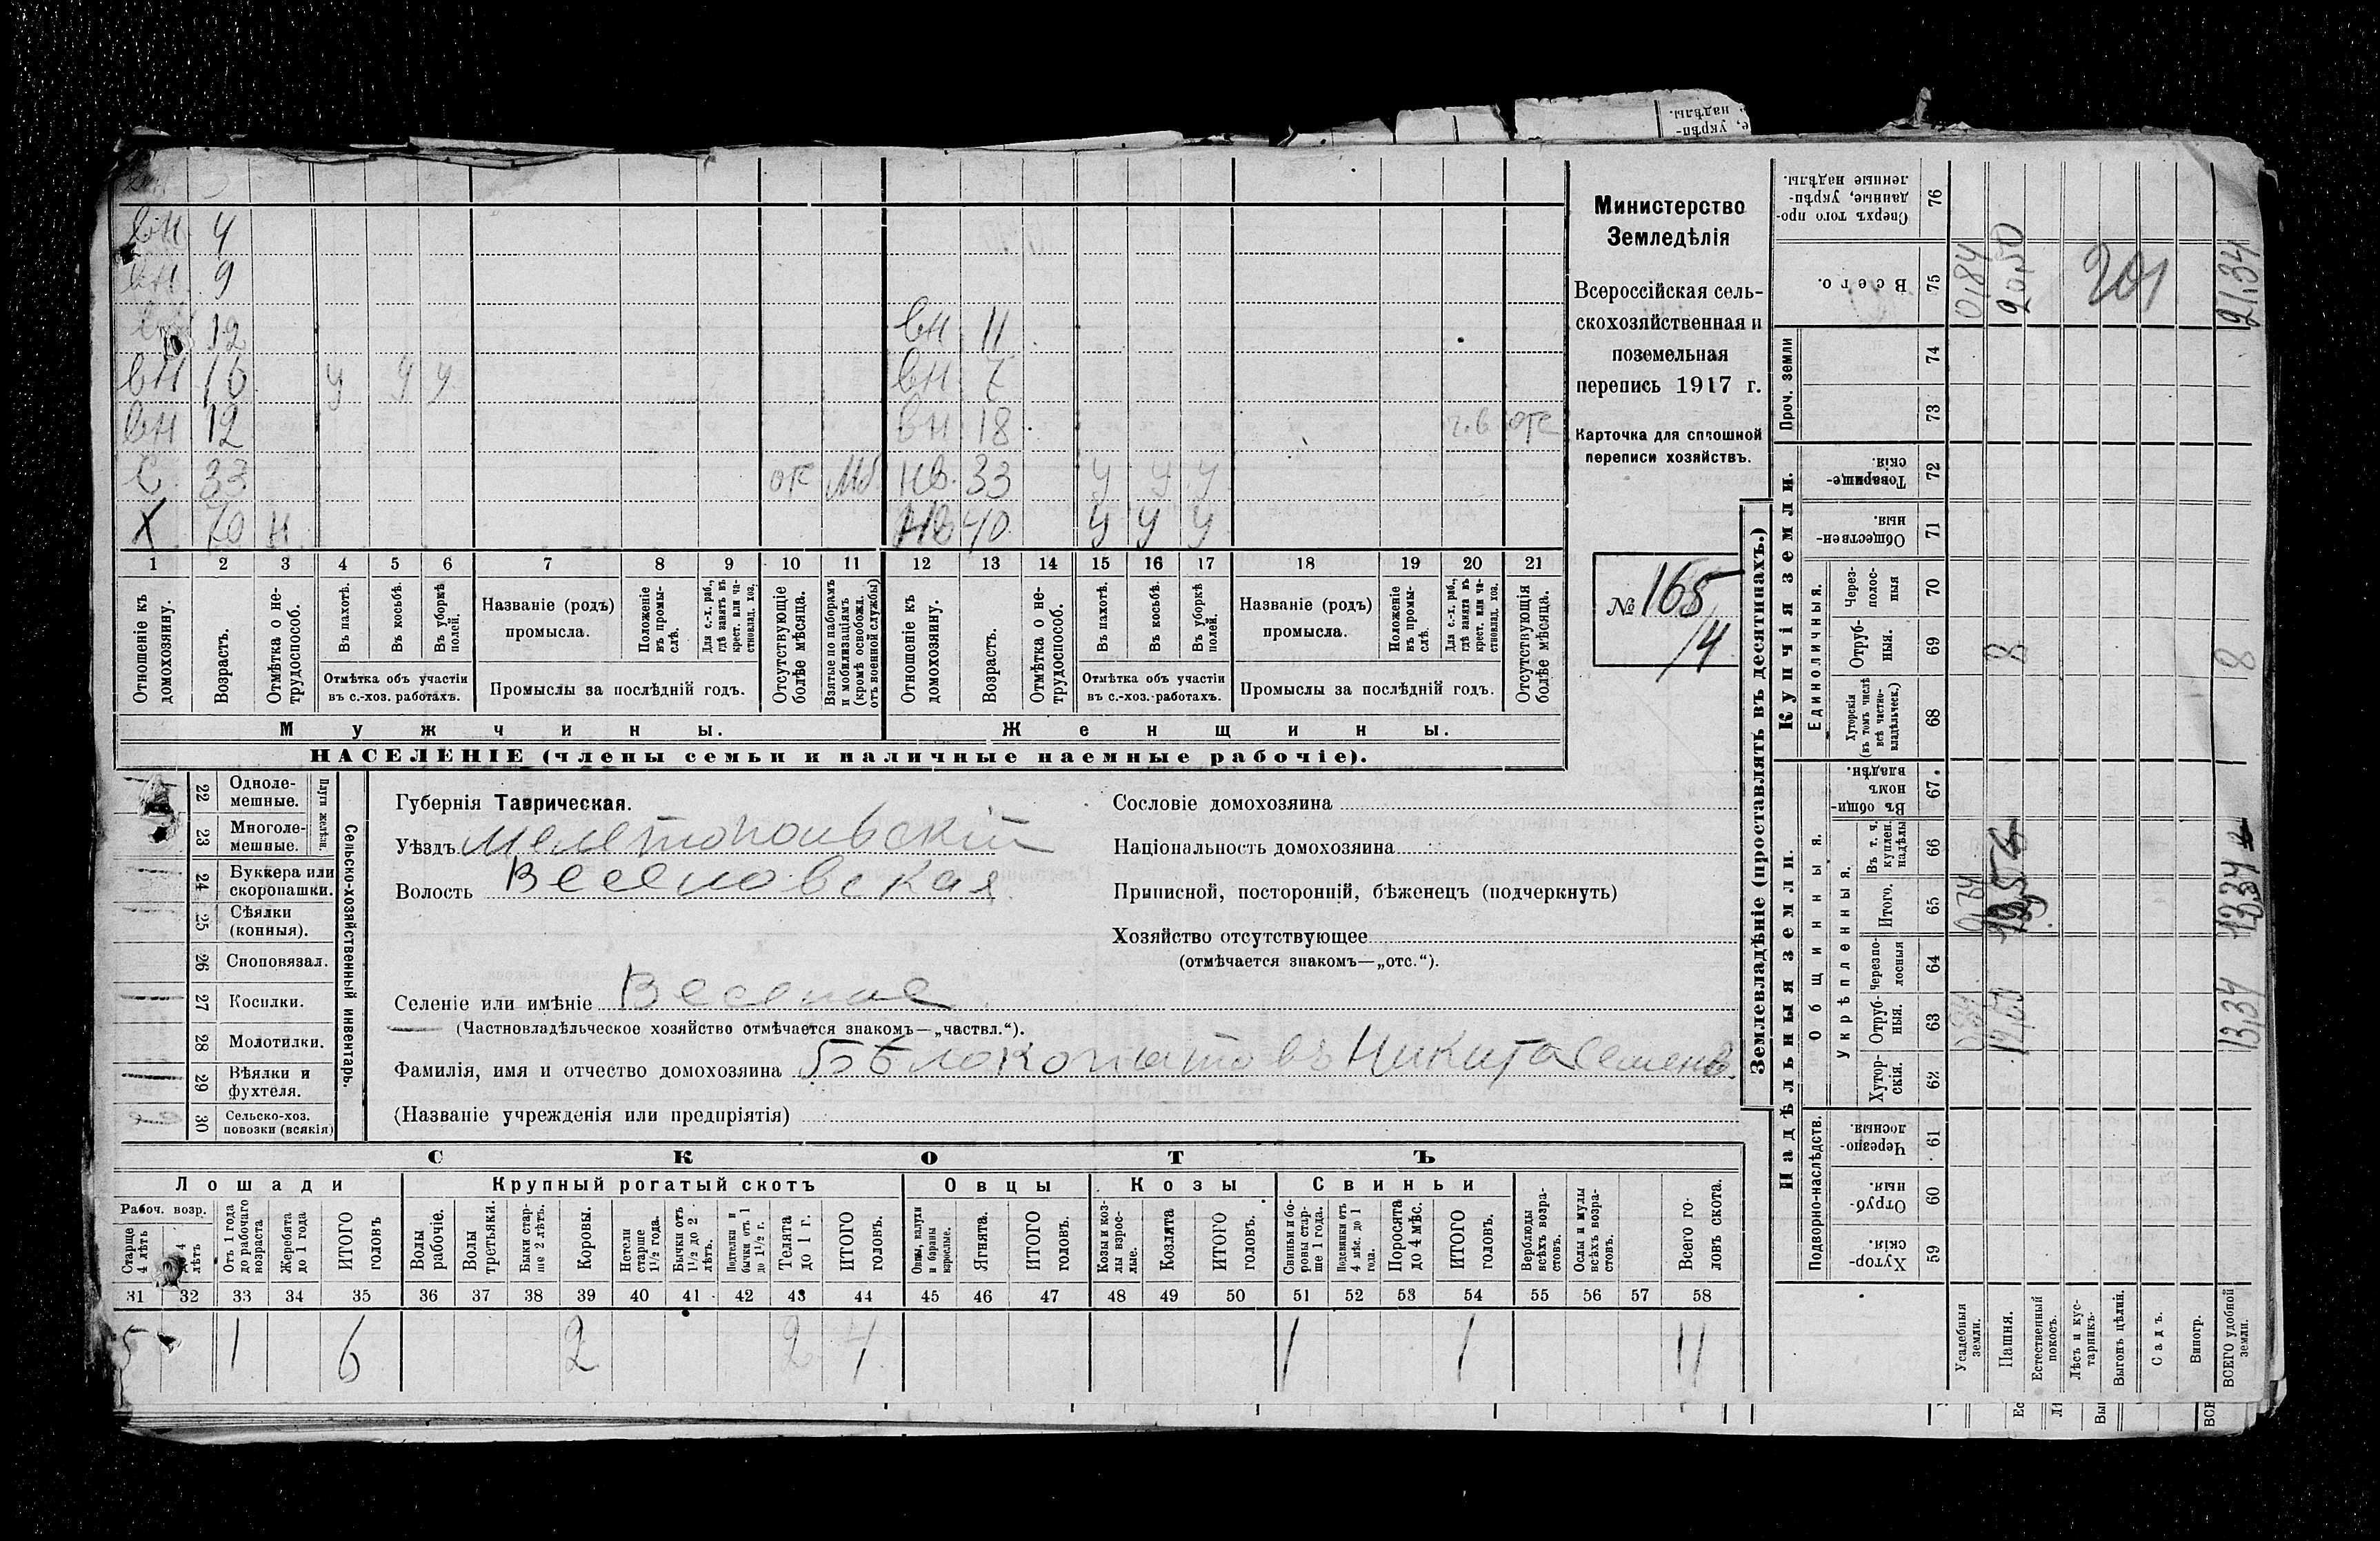 надѣлы.
е, укрѣп-
вн 4
вн 9
12 вн 11
вн 16 у у у вн 7
вн 12 вн 18 отс
С 33 нв 33 у у у
Х 70 н нв 40 у у у
1 2 3 4 5 6 7 8 9 10 11 12 13 14 15 16 17 18 19 20 21
Отношеніе къ домохозяину.
Возрастъ.
Отмѣтка о не-
трудоспособ.
Въ пахотѣ.
Въ косьбѣ.
Въ уборкѣ полей.
Отмѣтка объ участіи
въ с.-хоз. работахъ.
Названіе (родъ)
промысла.
Положеніе
въ промы-
слѣ.
Для с.-х. раб.,
гдѣ занятъ въ
крест. или ча-
стновлад. хоз.
Промыслы за послѣдній годъ.
Отсутствующіе
болѣе мѣсяца.
Взятые по наборамъ
и мобилизаціямъ
(кромѣ освобожд.
отъ военной службы)
Отношеніе къ
домохозяину.
Возрастъ.
Отмѣтка о не-
трудоспособ.
Въ пахотѣ.
Въ косьбѣ.
Въ уборкѣ
полей.
Отмѣтка объ участіи
въ с.-хоз. работахъ.
Названіе (родъ)
промысла.
Положеніе
въ промы-
слѣ.
Для с.-х. раб.,
гдѣ занята въ
крест. или ча-
стновлад. хоз.
Промыслы за послѣдній годъ.
Отсутствующія
болѣе мѣсяца.
Мужчины.
Женщины.
НАСЕЛЕНІЕ (члены семьи и наличные наемные рабочіе).
Министерство
Земледѣлія
Всероссійская сель-
скохозяйственная и
поземельная
перепись 1917 г.
Карточка для сплошной
переписи хозяйствъ.
№ 165
14
22 Одноле-
мешные.
23 Многоле-
мешные.
Плуги желѣзн.
24 Буккера или
скоропашки.
25 Сѣялки
(конныя).
26 Сноповязал.
27 Косилки.
28 Молотилки.
29 Вѣялки и
фухтеля.
30 Сельско-хоз.
повозки (всякія)
Сельско-хозяйственный инвентарь.
Губернія Таврическая.
Уѣздъ Мелитопольскій
Волость Веселовская
Селеніе или имѣніе Веселое
(Частновладѣльческое хозяйство отмѣчается знакомъ—„частвл.“).
Фамилія, имя и отчество домохозяина Бѣлокопытовъ Никита Семенов.
(Названіе учрежденія или предпріятія)
Сословіе домохозяина
Національность домохозяина
Приписной, посторонній, бѣженецъ (подчеркнуть)
Хозяйство отсутствующее
(отмѣчается знакомъ—„отс.“).
СКОТЪ
Лошади
Крупный рогатый скотъ
Овцы
Козы
Свиньи
Рабоч. возр.
Старше
4 лѣтъ
4
лѣтъ
Отъ 1 года
до рабочаго
возраста
Жеребята
до 1 года
ИТОГО
головъ
Волы
рабочіе.
Волы
третьяки.
Быки стар-
ше 2 лѣтъ.
Коровы.
Нетели
старше
1½ года.
Бычки отъ
1½ до 2
лѣтъ.
Подтелки и
бычки отъ 1
до 1½ г.
Телята
до 1 г.
ИТОГО
головъ.
Овцы, валухи
и бараны
взрослые.
Ягнята.
ИТОГО
головъ.
Козы и коз-
лы взрос-
лые.
Козлята
ИТОГО
головъ.
Свиньи и бо-
ровы стар-
ше 1 года.
Подсвинки отъ
4 мѣс. до 1
года.
Поросята
до 4 мѣс.
ИТОГО
головъ.
Верблюды
всѣхъ возра-
стовъ.
Ослы и мулы
всѣхъ возра-
стовъ.
Всего го-
ловъ скота.
31 32 33 34 35 36 37 38 39 40 41 42 43 44 45 46 47 48 49 50 51 52 53 54 55 56 57 58
5 1 6 2 2 4 1 1 11
Землевладѣніе (проставлять въ десятинахъ.)
Купчія земли.
Надѣльныя земли.
Проч. земли
Единоличныя.
Общинныя.
Укрѣпленныя.
Подворно-наслѣдств.
Сверхъ того про-
данные, укрѣп-
ленные надѣлы.
76
Всего.
75 0,84 20,50 201 21,34
74
73
Товарище-
скія.
72
Обществен-
ныя.
71
Через-
полос-
ныя
70
Отруб-
ныя.
69 8 8
Хуторскія
(въ томъ числѣ
всѣ частно-
владѣльческ.)
68
Въ общи-
номъ
владѣн.
67
Въ т. ч.
куплен.
надѣлы
66
Итого.
65
Черезпо-
лосныя
64
Отруб-
ныя.
63 13,34
Хутор-
скія.
62
Черезпо-
лосныя.
61
Отруб-
ныя.
60
Хутор-
скія.
59
Усадебныя
земли.
Пашня.
Естественный
покосъ.
Лѣсъ и кус-
тарникъ.
Выгонъ цѣлин.
Садъ.
Виногр.
ВСЕГО удобной
земли.